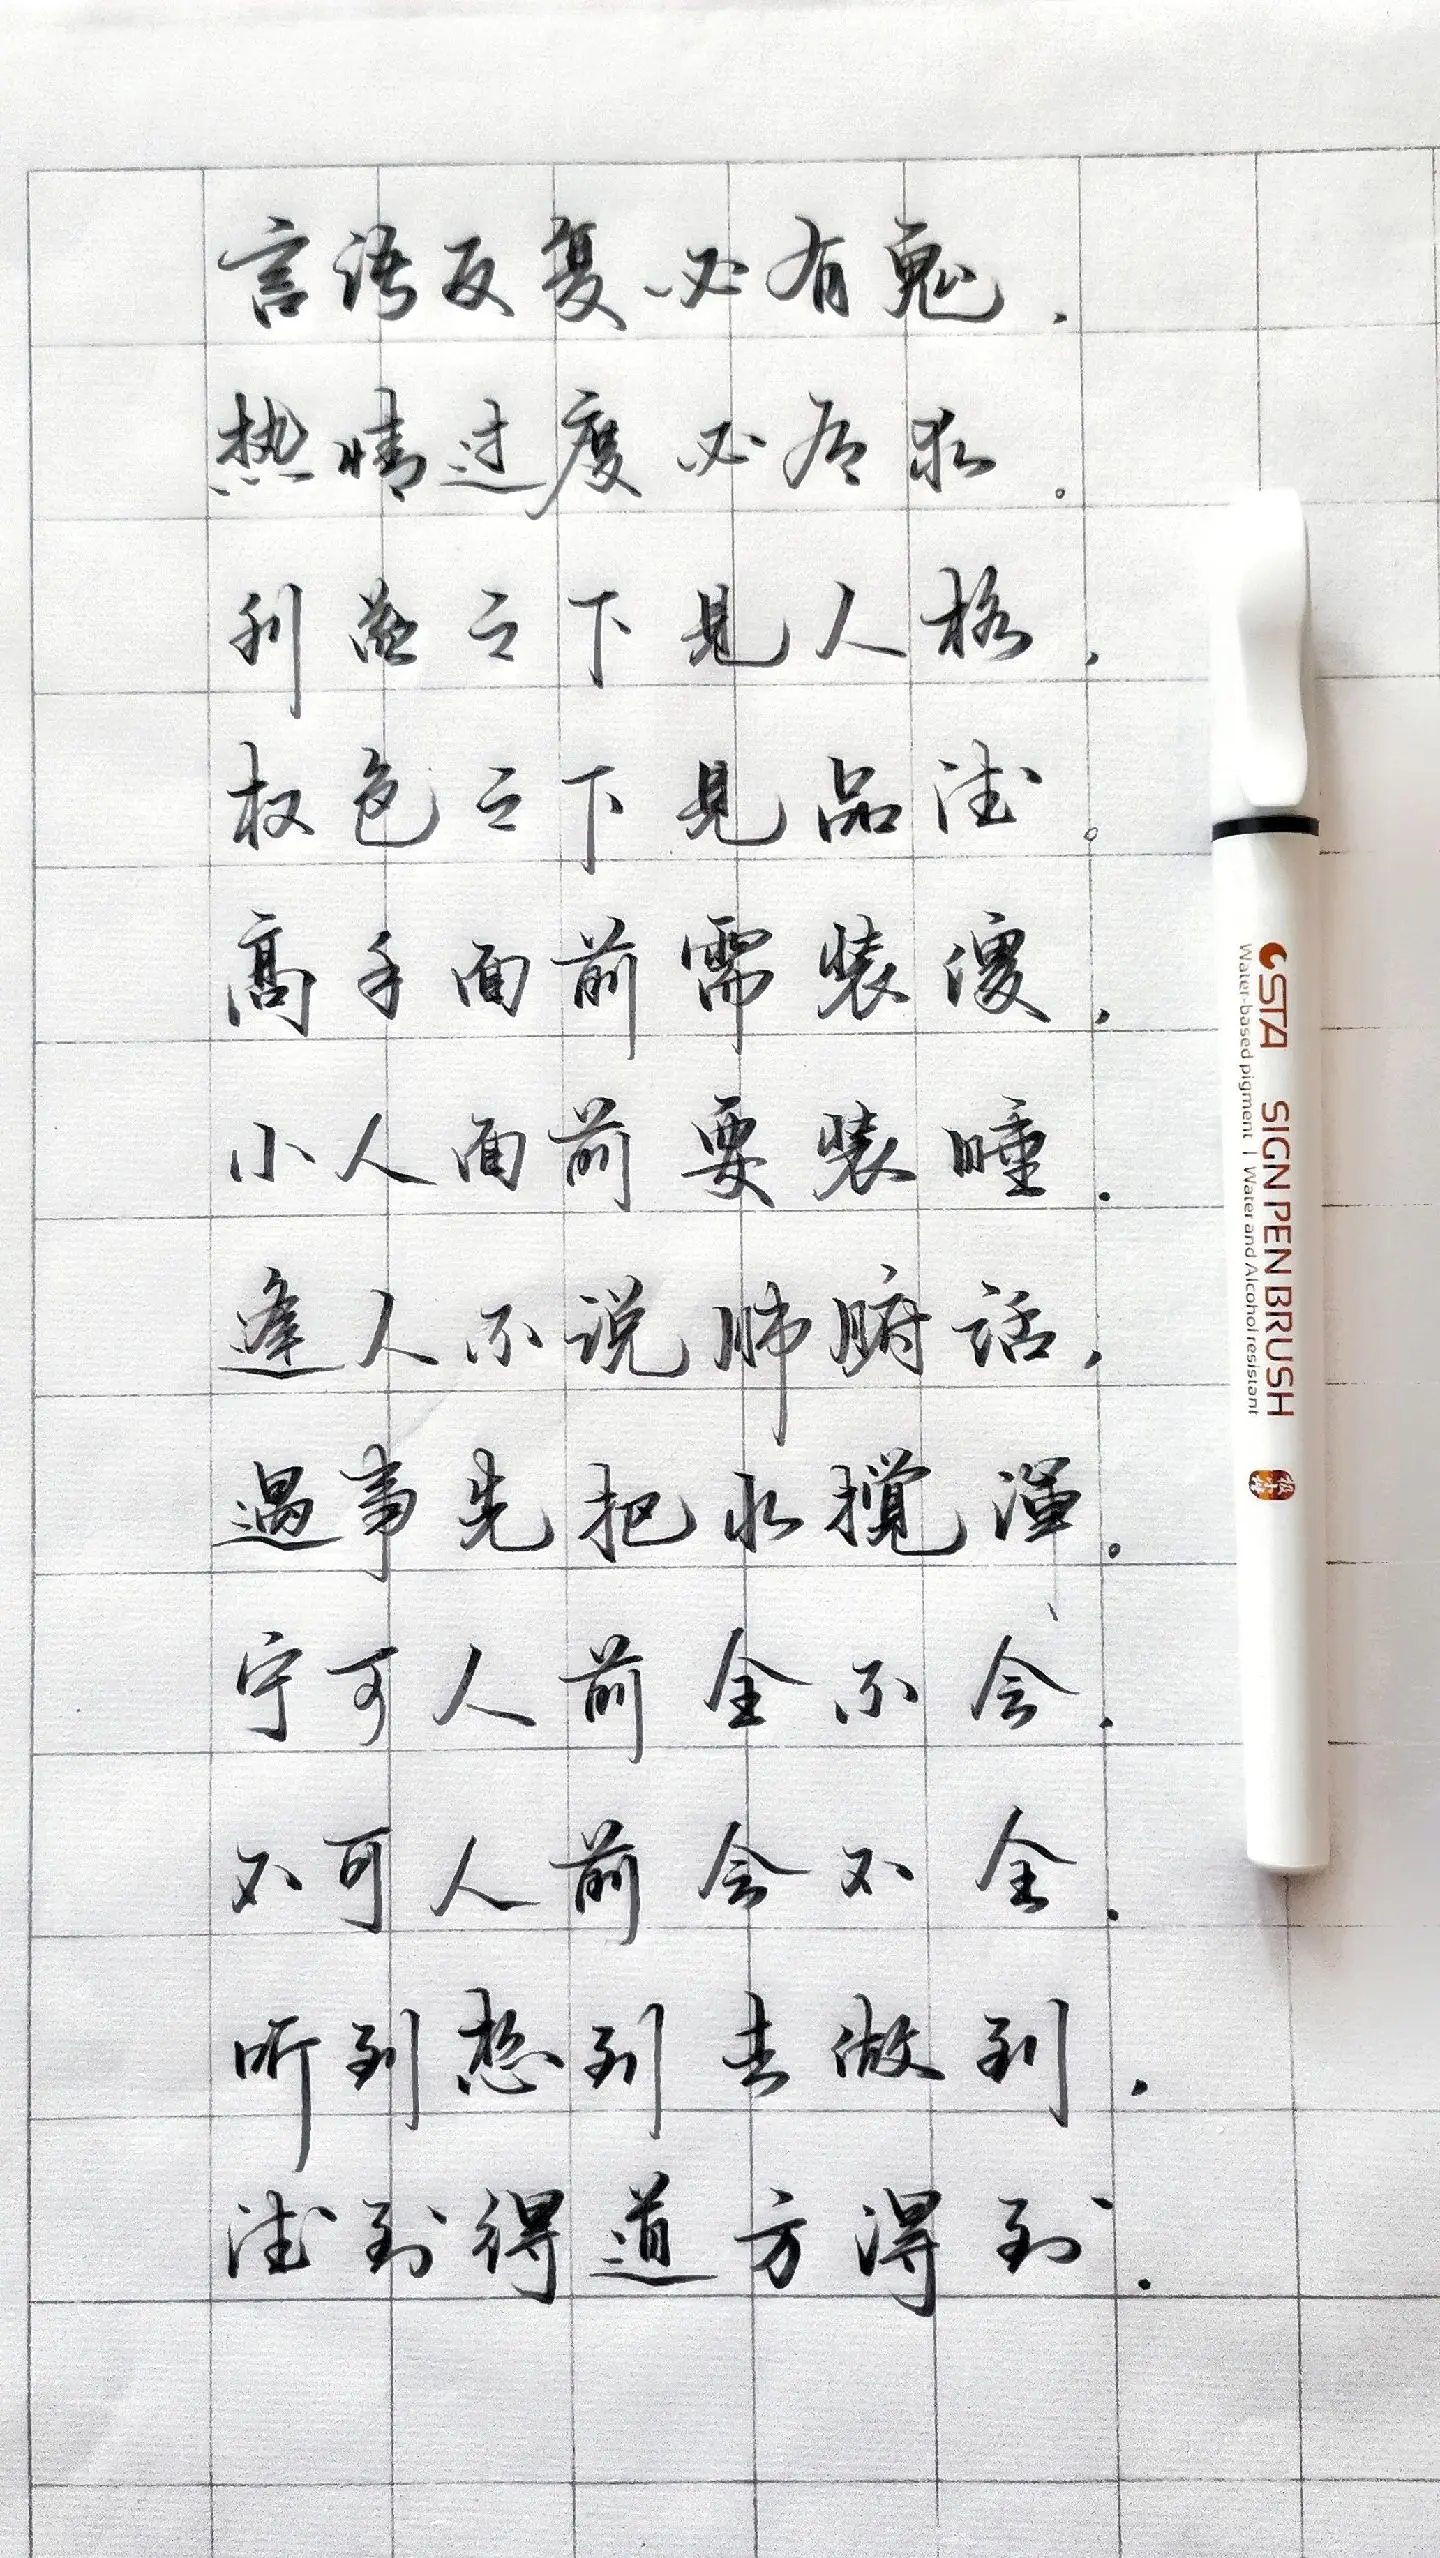 言语反复必有鬼,
热情过度必有求。
利益之下见人格,
权色之下见品德。
高手面前需装傻,
小人面前要装睡.
逢人不说肺腑话,
遇事先把水搅浑。
宁可人前全不会,
不可人前会不全.
听到想到去做到,
德到得道方得到.
STA SIGN PEN BRUSH
Water-based pigment | Water and Alcohol resistant